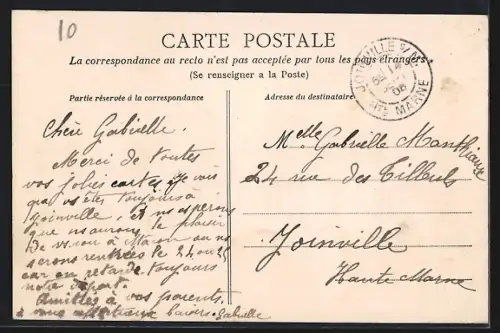 10
CARTE POSTALE
La correspondance au recto n'est pas acceptée par tous les pays étrangers
(Se renseigner a la Poste)
JOINVILLE S/M.
14
08
HTE MARNE
Partie réservée à la correspondance
Chère Gabrielle.
Merci de toutes
vos jolies cartes. Je vois
que vs êtes toujours à
Joinville. Et ns esperons
que ns aurons le plaisir
De vs voir à ns
serons rentrées le 24 ou 25
car on retarde toujours
notre départ.
Amitiés à vos parents.
à vous affectueux baisers. Gabrielle
Adresse du destinataire
Melle Gabrielle
24 rue des Tilleuls
Joinville
Haute Marne